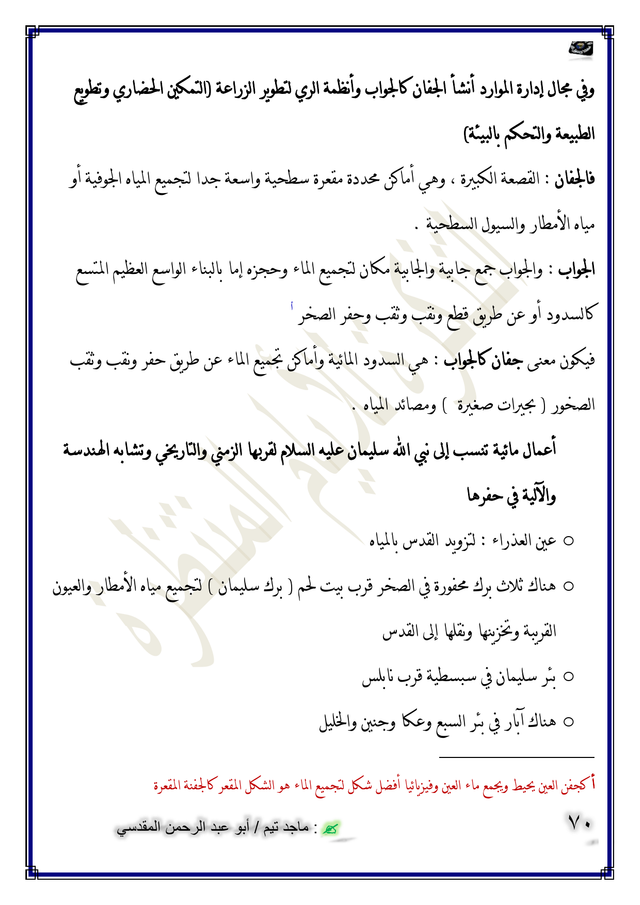 وفي مجال إدارة الموارد أنشأ الجفان كالجواب وأنظمة الري لتطوير الزراعة (التمكين الحضاري وتطويع
الطبيعة والتحكم بالبيئة)
فالجفان : القصعة الكبيرة ، وهي أماكن محددة مقعرة سطحية واسعة جدا لتجميع المياه الجوفية أو
مياه الأمطار والسيول السطحية .
الجواب : والجواب جمع جابية والجابية مكان لتجميع الماء وحجزه إما بالبناء الواسع العظيم المتسع
كالسدود أو عن طريق قطع ونقب وثقب وحفر الصخر أ
فيكون معنى جفان كالجواب : هي السدود المائية وأماكن تجميع الماء عن طريق حفر ونقب وثقب
الصخور ( بحيرات صغيرة ) ومصائد المياه .
أعمال مائية تنسب إلى نبي الله سليمان عليه السلام لقربها الزمني والتاريخي وتشابه الهندسة
والآلية في حفرها
○ عين العذراء : لتزويد القدس بالمياه
○ هناك ثلاث برك محفورة في الصخر قرب بيت لحم ( برك سليمان ) لتجميع مياه الأمطار والعيون
القريبة وتخزينها ونقلها إلى القدس
○ بئر سليمان في سبسطية قرب نابلس
○ هناك آبار في بئر السبع وعكا وجنين والخليل
أ كجفن العين يحيط ويجمع ماء العين وفيزيائيا أفضل شكل لتجميع الماء هو الشكل المقعر كالجفنة المقعرة
: ماجد تيم / أبو عبد الرحمن المقدسي
٧٠